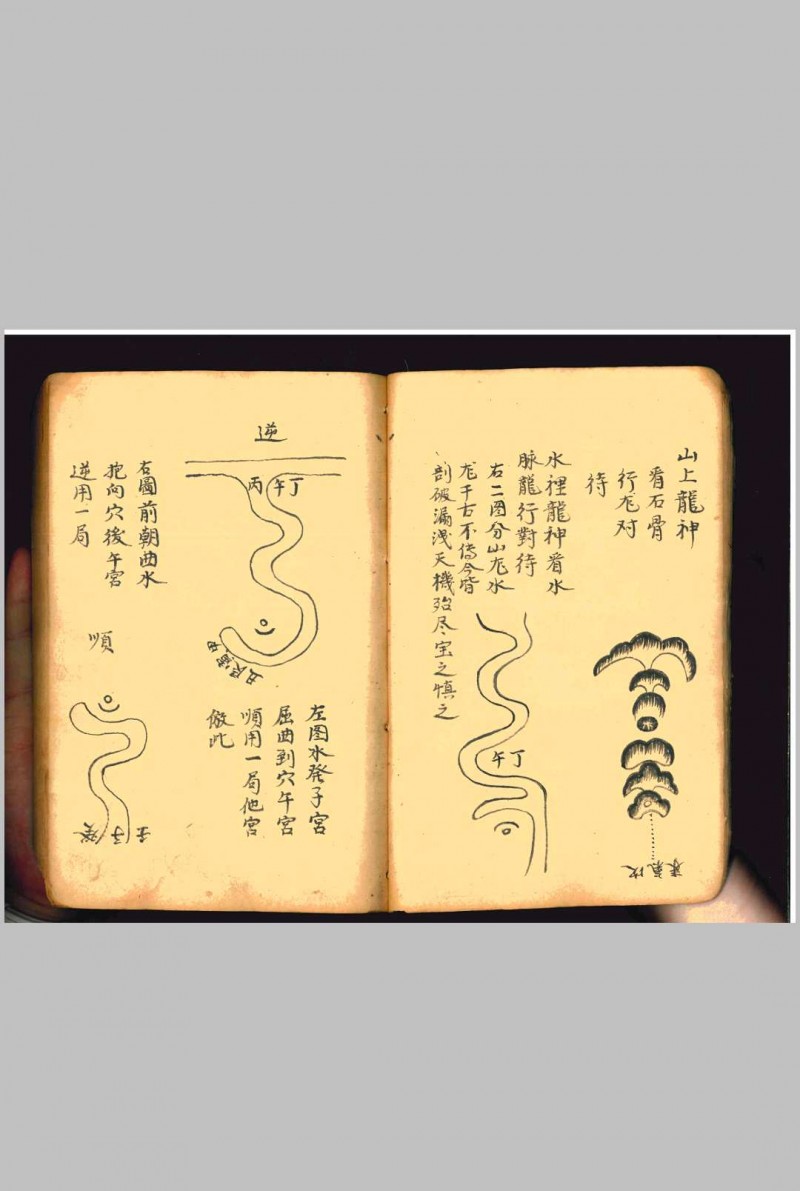 山上龍神
看石骨
行龙对
待
水裡龍神看水
脉龍行對待
右二图分山龙水
龙千古不传今皆
剖破漏洩天機殆尽宝之慎之
午丁
氣
逆
丙午丁
右圖前朝曲水
抱向穴後午宮
逆用一局
左图水癸子宮
屈曲到穴午宮
順用一局他宮
倣此
順
癸子壬